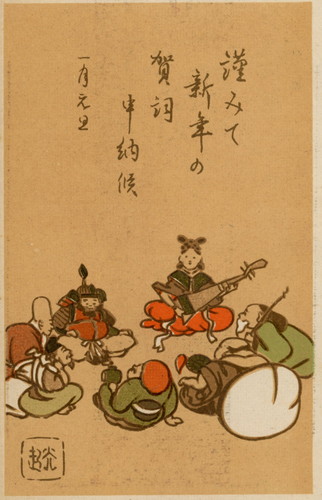 謹みて
新年の
賀詞
申納候
一月元旦